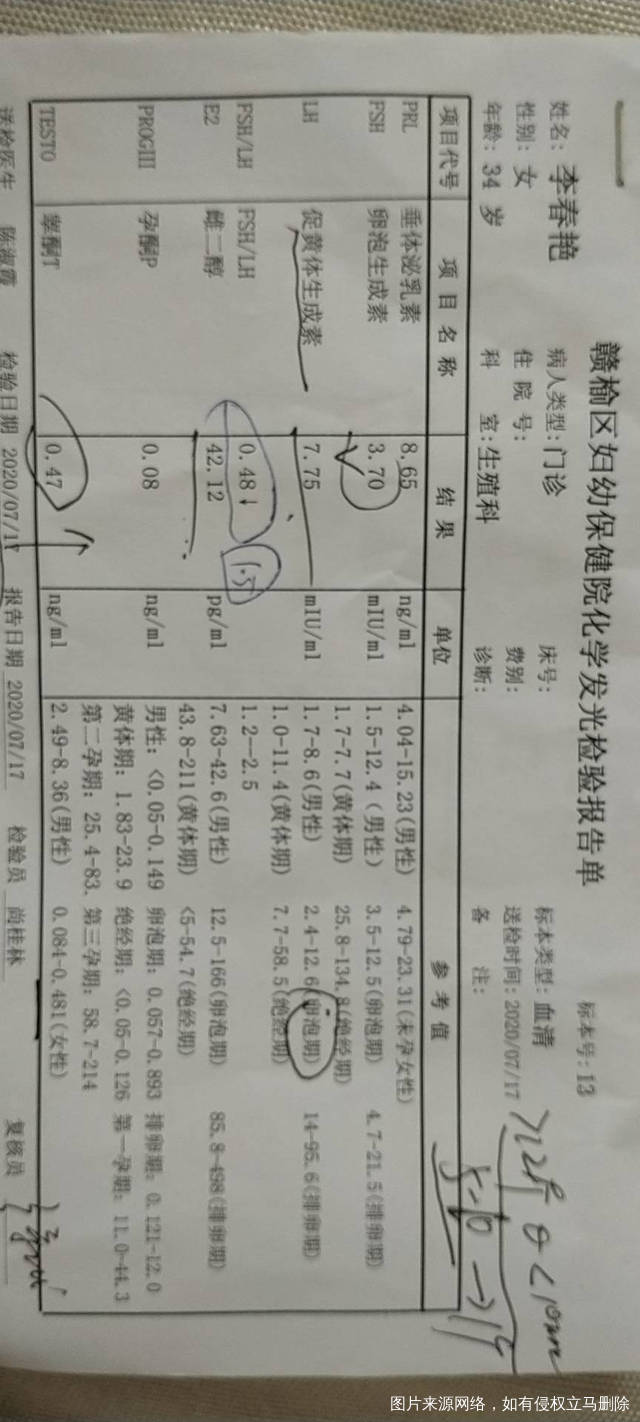 赣榆区妇幼保健院化学发光检验报告单
标本号:13
姓名: 李春艳 病人类型:门诊 床号: 标本类型:血清
性别: 女 住 院 号: 费别: 送检时间:2020/07/17
年龄: 34 岁 科 室:生殖科 诊断: 备 注:
项目代号 项 目 名 称 结 果 单位 参 考 值
PRL 垂体泌乳素 8.65 ng/ml 4.04-15.23(男性) 4.79-23.31(未孕女性)
FSH 卵泡生成素 3.70 mIU/ml 1.5-12.4 (男性) 3.5-12.5(卵泡期) 4.7-21.5(排卵期)
1.7-7.7(黄体期) 25.8-134.8(绝经期)
LH 促黄体生成素 7.75 mIU/ml 1.7-8.6(男性) 2.4-12.6(卵泡期) 14-95.6(排卵期)
1.0-11.4(黄体期) 7.7-58.5(绝经期)
FSH/LH FSH/LH 0.48↓ 1.2—2.5
E2 雌二醇 42.12 pg/ml 7.63-42.6(男性) 12.5-166(卵泡期) 85.8-498(排卵期)
43.8-211(黄体期) <5-54.7(绝经期)
PROGIII 孕酮P 0.08 ng/ml 男性: <0.05-0.149 卵泡期: 0.057-0.893 排卵期: 0.121-12.0
黄体期: 1.83-23.9 绝经期: <0.05-0.126 第一孕期: 11.0-44.3
第二孕期: 25.4-83. 第三孕期: 58.7-214
TESTO 睾酮T 0.47 ng/ml 2.49-8.36(男性) 0.084-0.481(女性)
送检医生 陈淑霞 检验日期 2020/07/17 报告日期 2020/07/17 检验员 尚桂林 复核员
图片来源网络，如有侵权立马删除